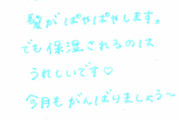 髪がぱやぱやします。
でも保湿されるのは
うれしいです♡
今月もがんばりましょう〜